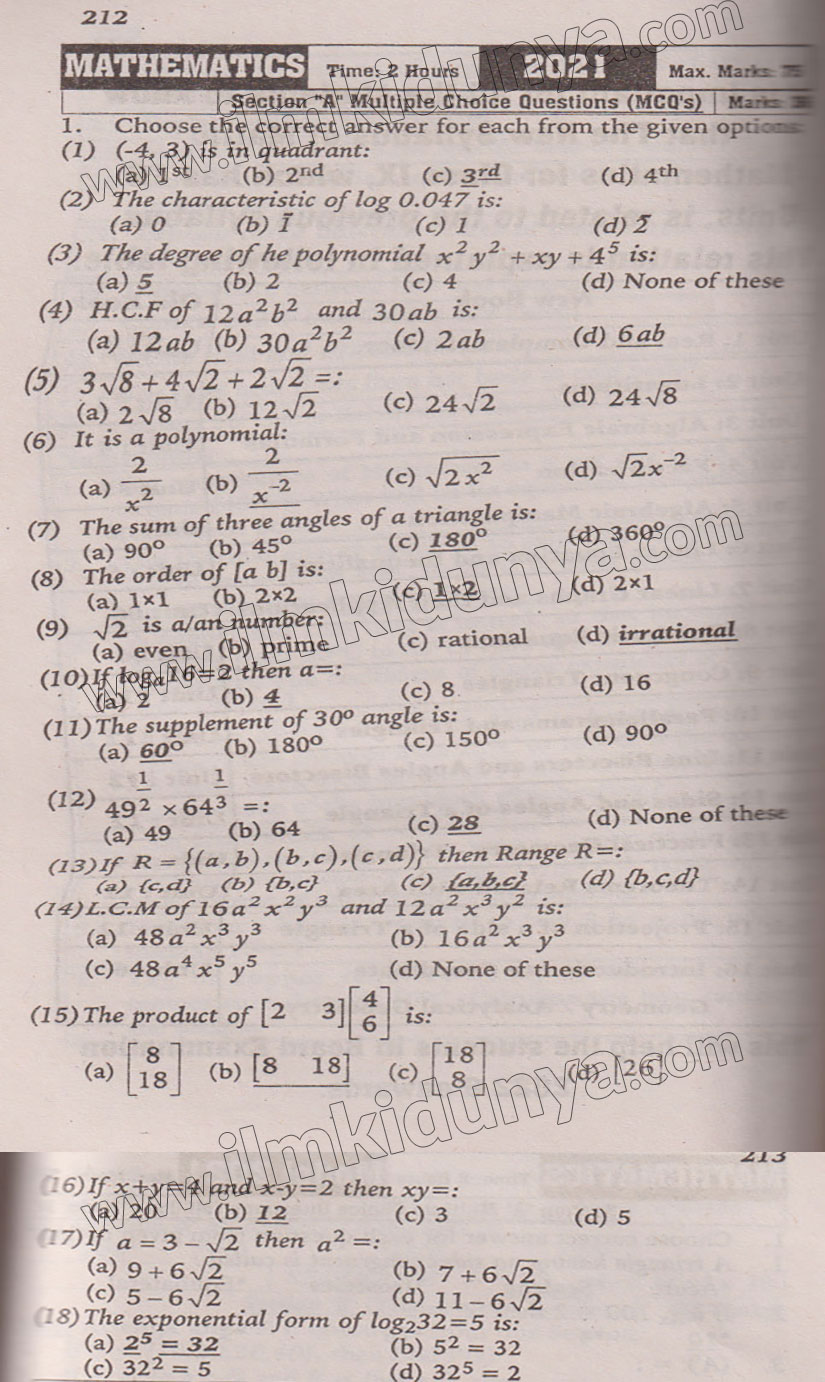 212
MATHEMATICS Time: 2 Hours 2021 Max. Marks 75
Section "A" Multiple Choice Questions (MCQ's) Marks
1. Choose the correct answer for each from the given options
(1) (-4, 3) is in quadrant:
(a) 1st (b) 2nd (c) 3rd (d) 4th
(2) The characteristic of log 0.047 is:
(a) 0 (b) 1̄ (c) 1 (d) 2̄
(3) The degree of he polynomial x²y² + xy + 4⁵ is:
(a) 5 (b) 2 (c) 4 (d) None of these
(4) H.C.F of 12a²b² and 30ab is:
(a) 12ab (b) 30a²b² (c) 2ab (d) 6ab
(5) 3√8 + 4√2 + 2√2 =:
(a) 2√8 (b) 12√2 (c) 24√2 (d) 24√8
(6) It is a polynomial:
(a) 2/x² (b) 2/x⁻² (c) √(2x²) (d) √2x⁻²
(7) The sum of three angles of a triangle is:
(a) 90º (b) 45º (c) 180º (d) 360º
(8) The order of [a b] is:
(a) 1×1 (b) 2×2 (c) 1×2 (d) 2×1
(9) √2 is a/an number:
(a) even (b) prime (c) rational (d) irrational
(10) If logₐ16=2 then a=:
(a) 2 (b) 4 (c) 8 (d) 16
(11) The supplement of 30º angle is:
(a) 60º (b) 180º (c) 150º (d) 90º
(12) 49^(1/2) × 64^(1/3) =:
(a) 49 (b) 64 (c) 28 (d) None of these
(13) If R = {(a,b),(b,c),(c,d)} then Range R=:
(a) {c,d} (b) {b,c} (c) {a,b,c} (d) {b,c,d}
(14) L.C.M of 16a²x²y³ and 12a²x³y² is:
(a) 48a²x³y³ (b) 16a²x³y³
(c) 48a⁴x⁵y⁵ (d) None of these
(15) The product of [2 3][4 6] is:
(a) [8 18] (b) [8 18] (c) [18 8] (d) [26]
213
(16) If x+y=4 and x-y=2 then xy=:
(a) 20 (b) 12 (c) 3 (d) 5
(17) If a = 3 – √2 then a² =:
(a) 9 + 6√2 (b) 7 + 6√2
(c) 5 – 6√2 (d) 11 – 6√2
(18) The exponential form of log₂32=5 is:
(a) 2⁵ = 32 (b) 5² = 32
(c) 32² = 5 (d) 32⁵ = 2
www.ilmkidunya.com
www.ilmkidunya.com
www.ilmkidunya.com